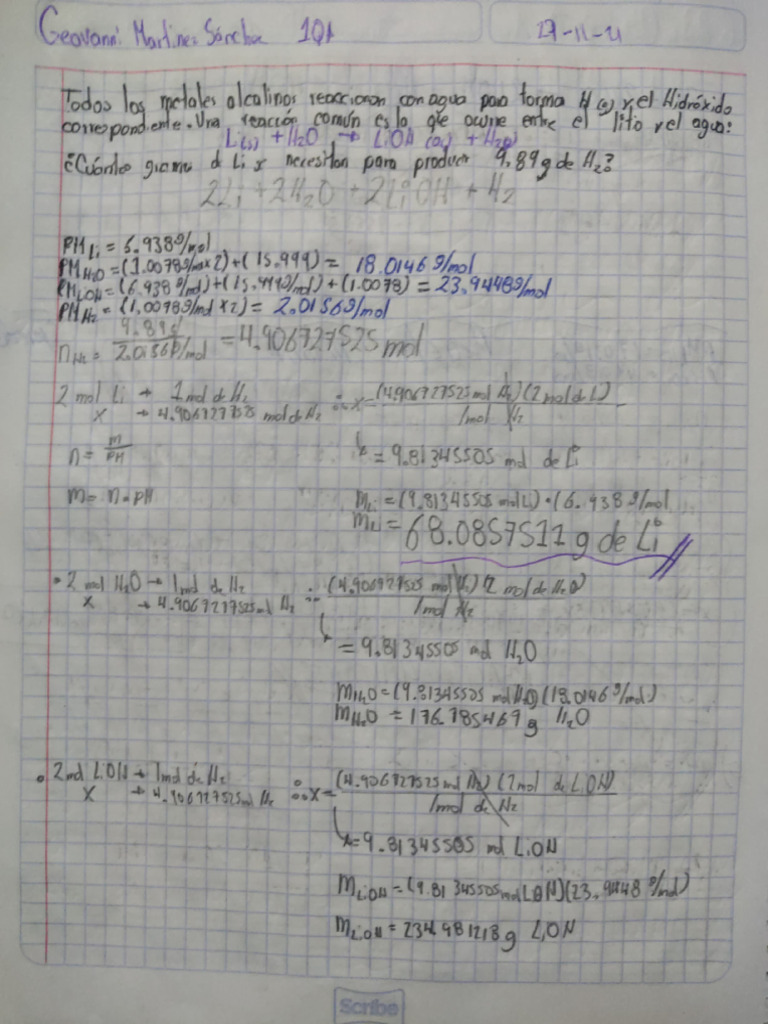 Geovanni Martinez Sánchez 1QA 17-11-21
Todos los metales alcalinos reaccionan con agua para forma H (g) y el Hidróxido
correspondente. Una reacción común es la que ocurre entre el litio y el agua:
Li(s) + H2O → LiOH (ac) + H2(g)
¿Cuánto gramos d Li se necesitan para producir 9,89g de H2?
2Li + 2H2O → 2LiOH + H2
PM Li = 6.938g/mol
PM H2O = (1.0078g/mol x 2) + (15.999) = 18.0146 g/mol
PM LiOH = (6.938g/mol) + (15.999g/mol) + (1.0078) = 23.9448g/mol
PM H2 = (1.0078g/mol x 2) = 2.0156g/mol
n H2 = 9.89g / 2.0156g/mol = 4.906727525 mol
2 mol Li → 1 mol de H2 ∴ x = (4.906727525 mol H2)(2 mol de Li)
x → 4.906727525 mol de H2 1 mol H2
n = m/PM x = 9.81345505 mol de Li
m = n·PM m Li = (9.81345505 mol Li)·(6.938 g/mol
m Li = 68.0857511 g de Li
• 2 mol H2O → 1 mol de H2 ∴ (4.906727525 mol H2)(2 mol de H2O)
x → 4.906727525 mol H2 1 mol H2
= 9.81345505 mol H2O
m H2O = (9.81345505 mol H2O)(18.0146 g/mol)
m H2O = 176.785469 g H2O
• 2 mol LiOH → 1 mol de H2 ∴ x = (4.906727525 mol H2)(2 mol de LiOH)
x → 4.906727525 mol H2 1 mol de H2
x = 9.81345505 mol LiOH
m LiOH = (9.81345505 mol LiOH)(23.9448 g/mol)
m LiOH = 234.981218 g LiOH
Scribe